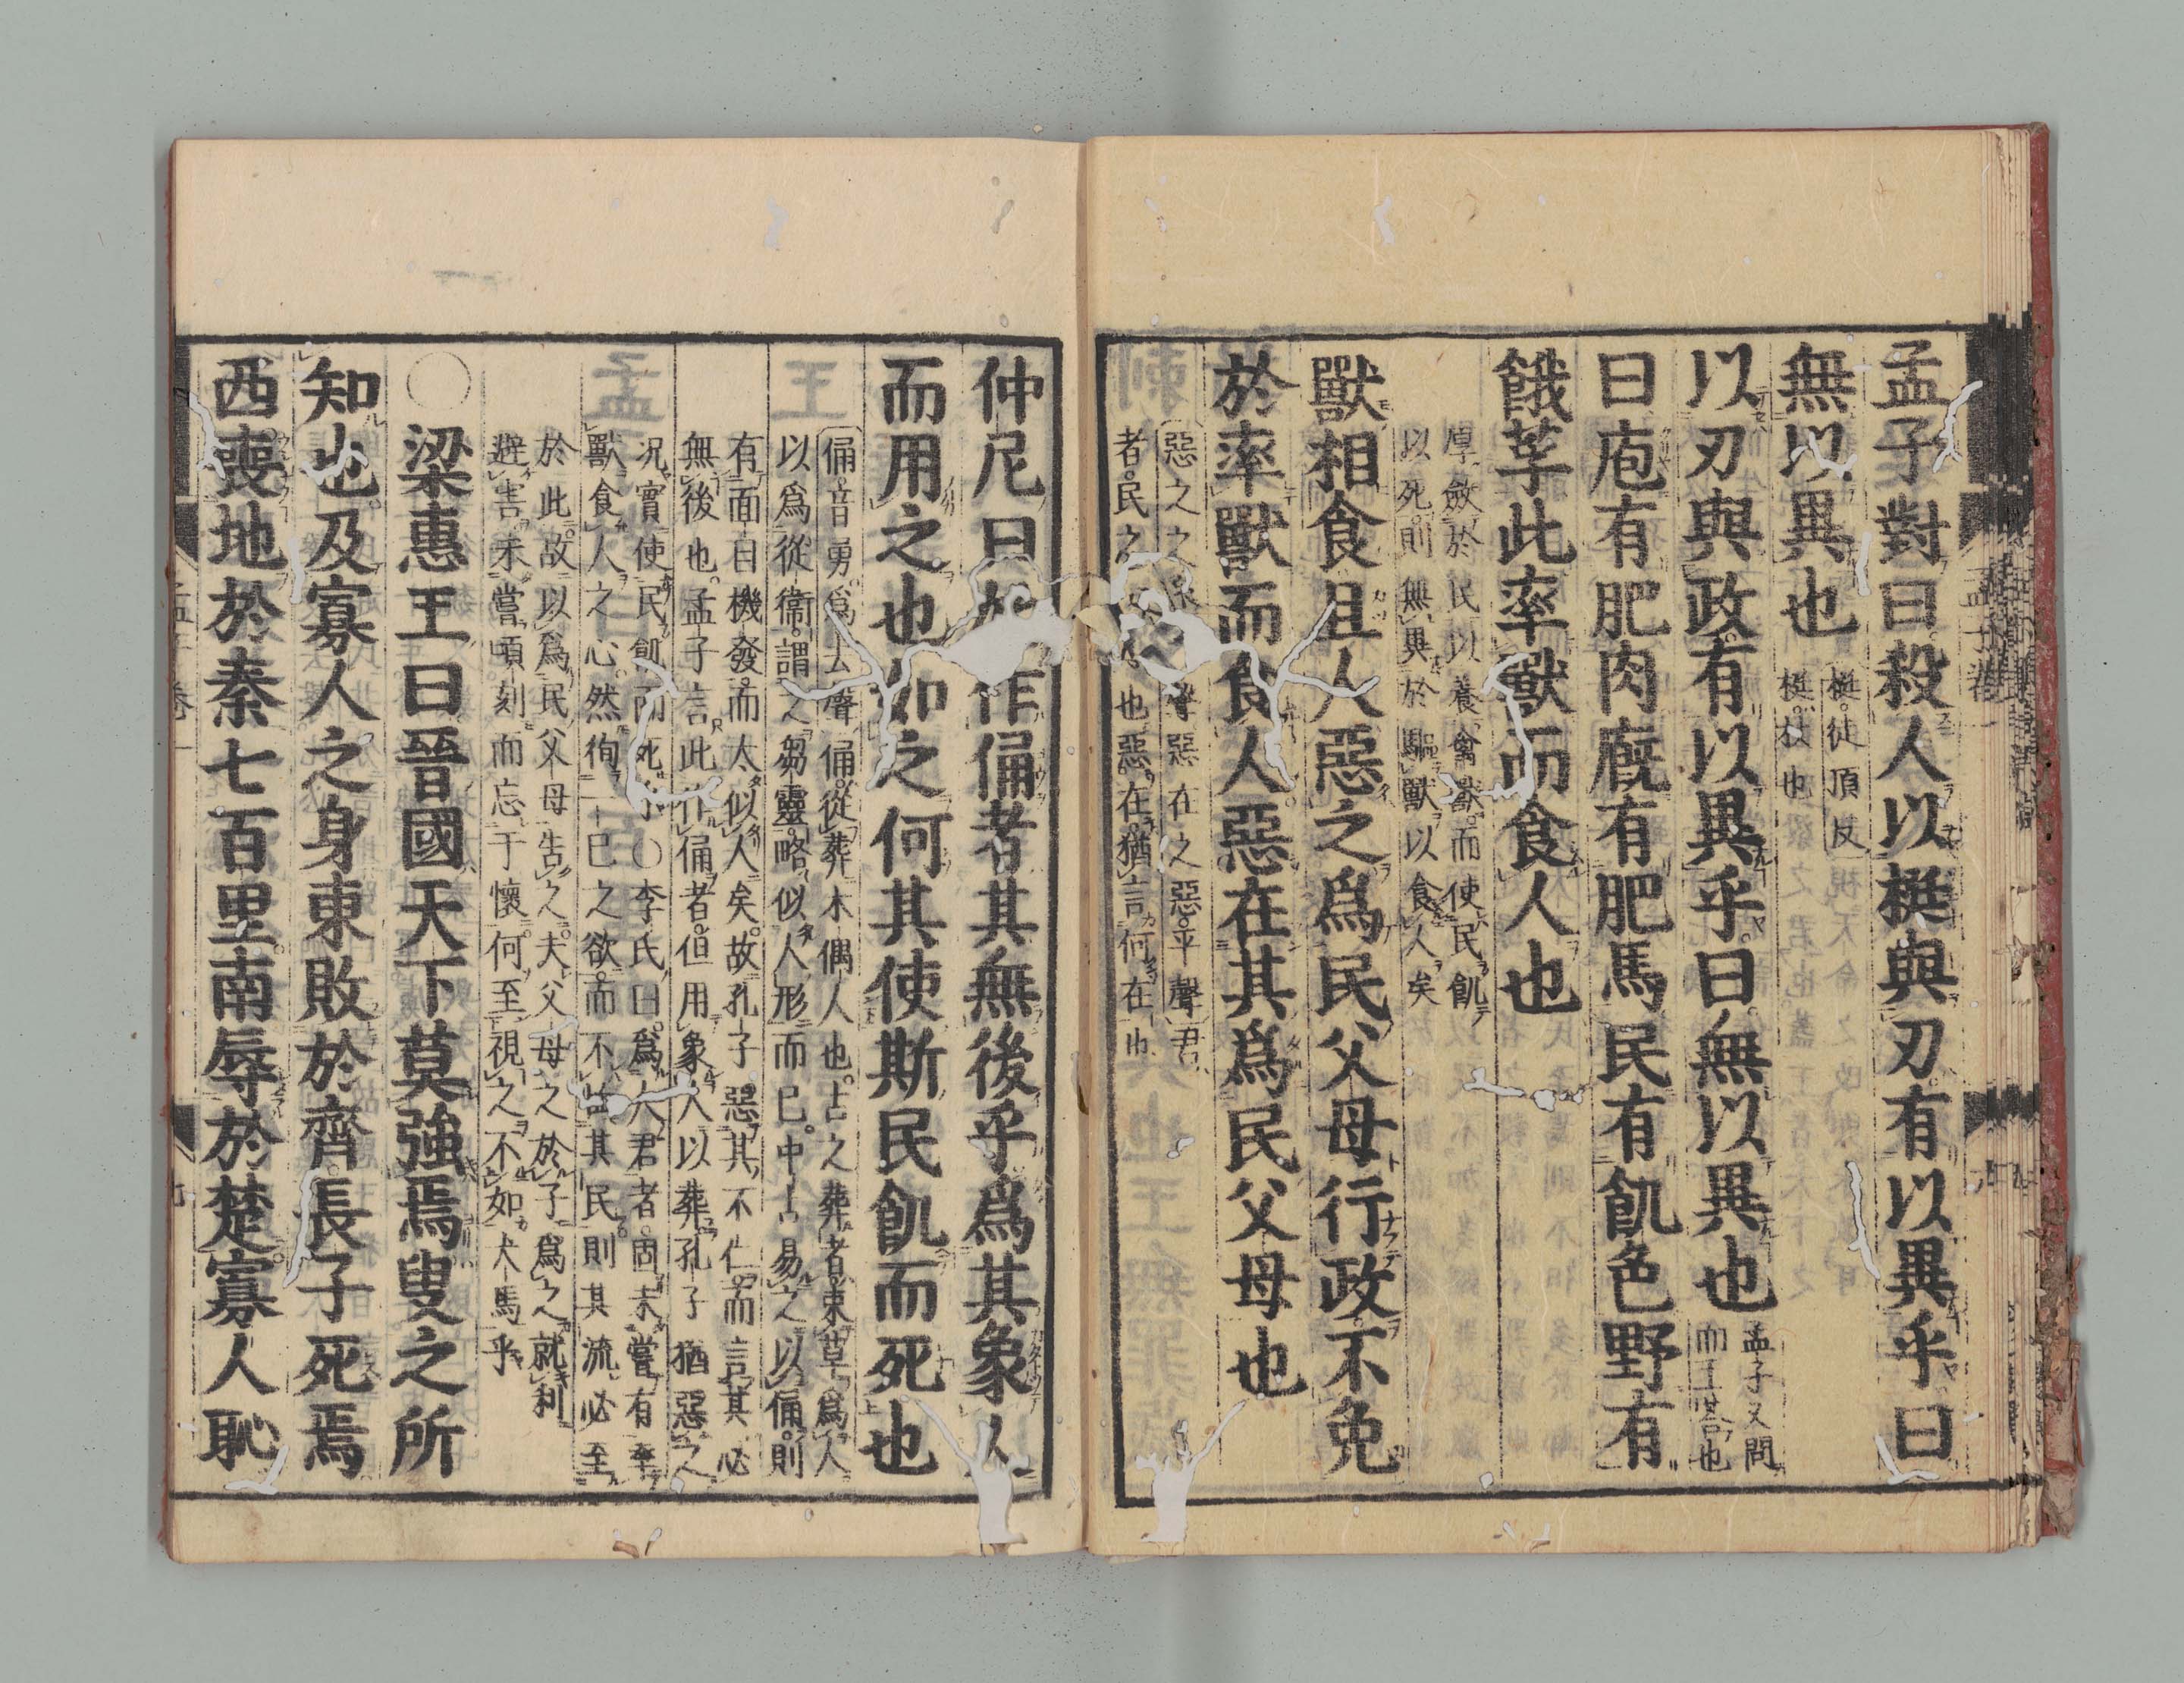 孟子對曰殺人以梃與刃有以異乎曰
無以異也
梃徒頂反
梃杖也
以刃與政有以異乎曰無以異也
孟子又問
而王答也
曰庖有肥肉廐有肥馬民有飢色野有
餓莩此率獸而食人也
厚斂於民以養禽獸而使民飢
以死則無異於驅獸以食人矣
獸相食且人惡之爲民父母行政不免
於率獸而食人惡在其爲民父母也
惡之之 聲惡在之惡平聲君
者民之 也惡在猶言何在也
仲尼曰 作俑者其無後乎爲其象人
而用之也如之何其使斯民飢而死也
俑音勇爲去聲俑從葬木偶人也古之葬者束草爲人
以爲從衛謂之芻靈略似人形而已中古易之以俑則
有面目機發而太似人矣故孔子惡其不仁而言其必
無後也孟子言此作俑者但用象人以葬孔子猶惡之
况實使民飢而死乎○李氏曰爲人君者固未嘗有率
獸食人之心然徇一己之欲而不恤其民則其流必至
於此故以爲民父母告之夫父母之於子爲之就利
避害未嘗頃刻而忘于懷何至視之不如犬馬乎
○梁惠王曰晉國天下莫強焉叟之所
知也及寡人之身東敗於齊長子死焉
西喪地於秦七百里南辱於楚寡人恥